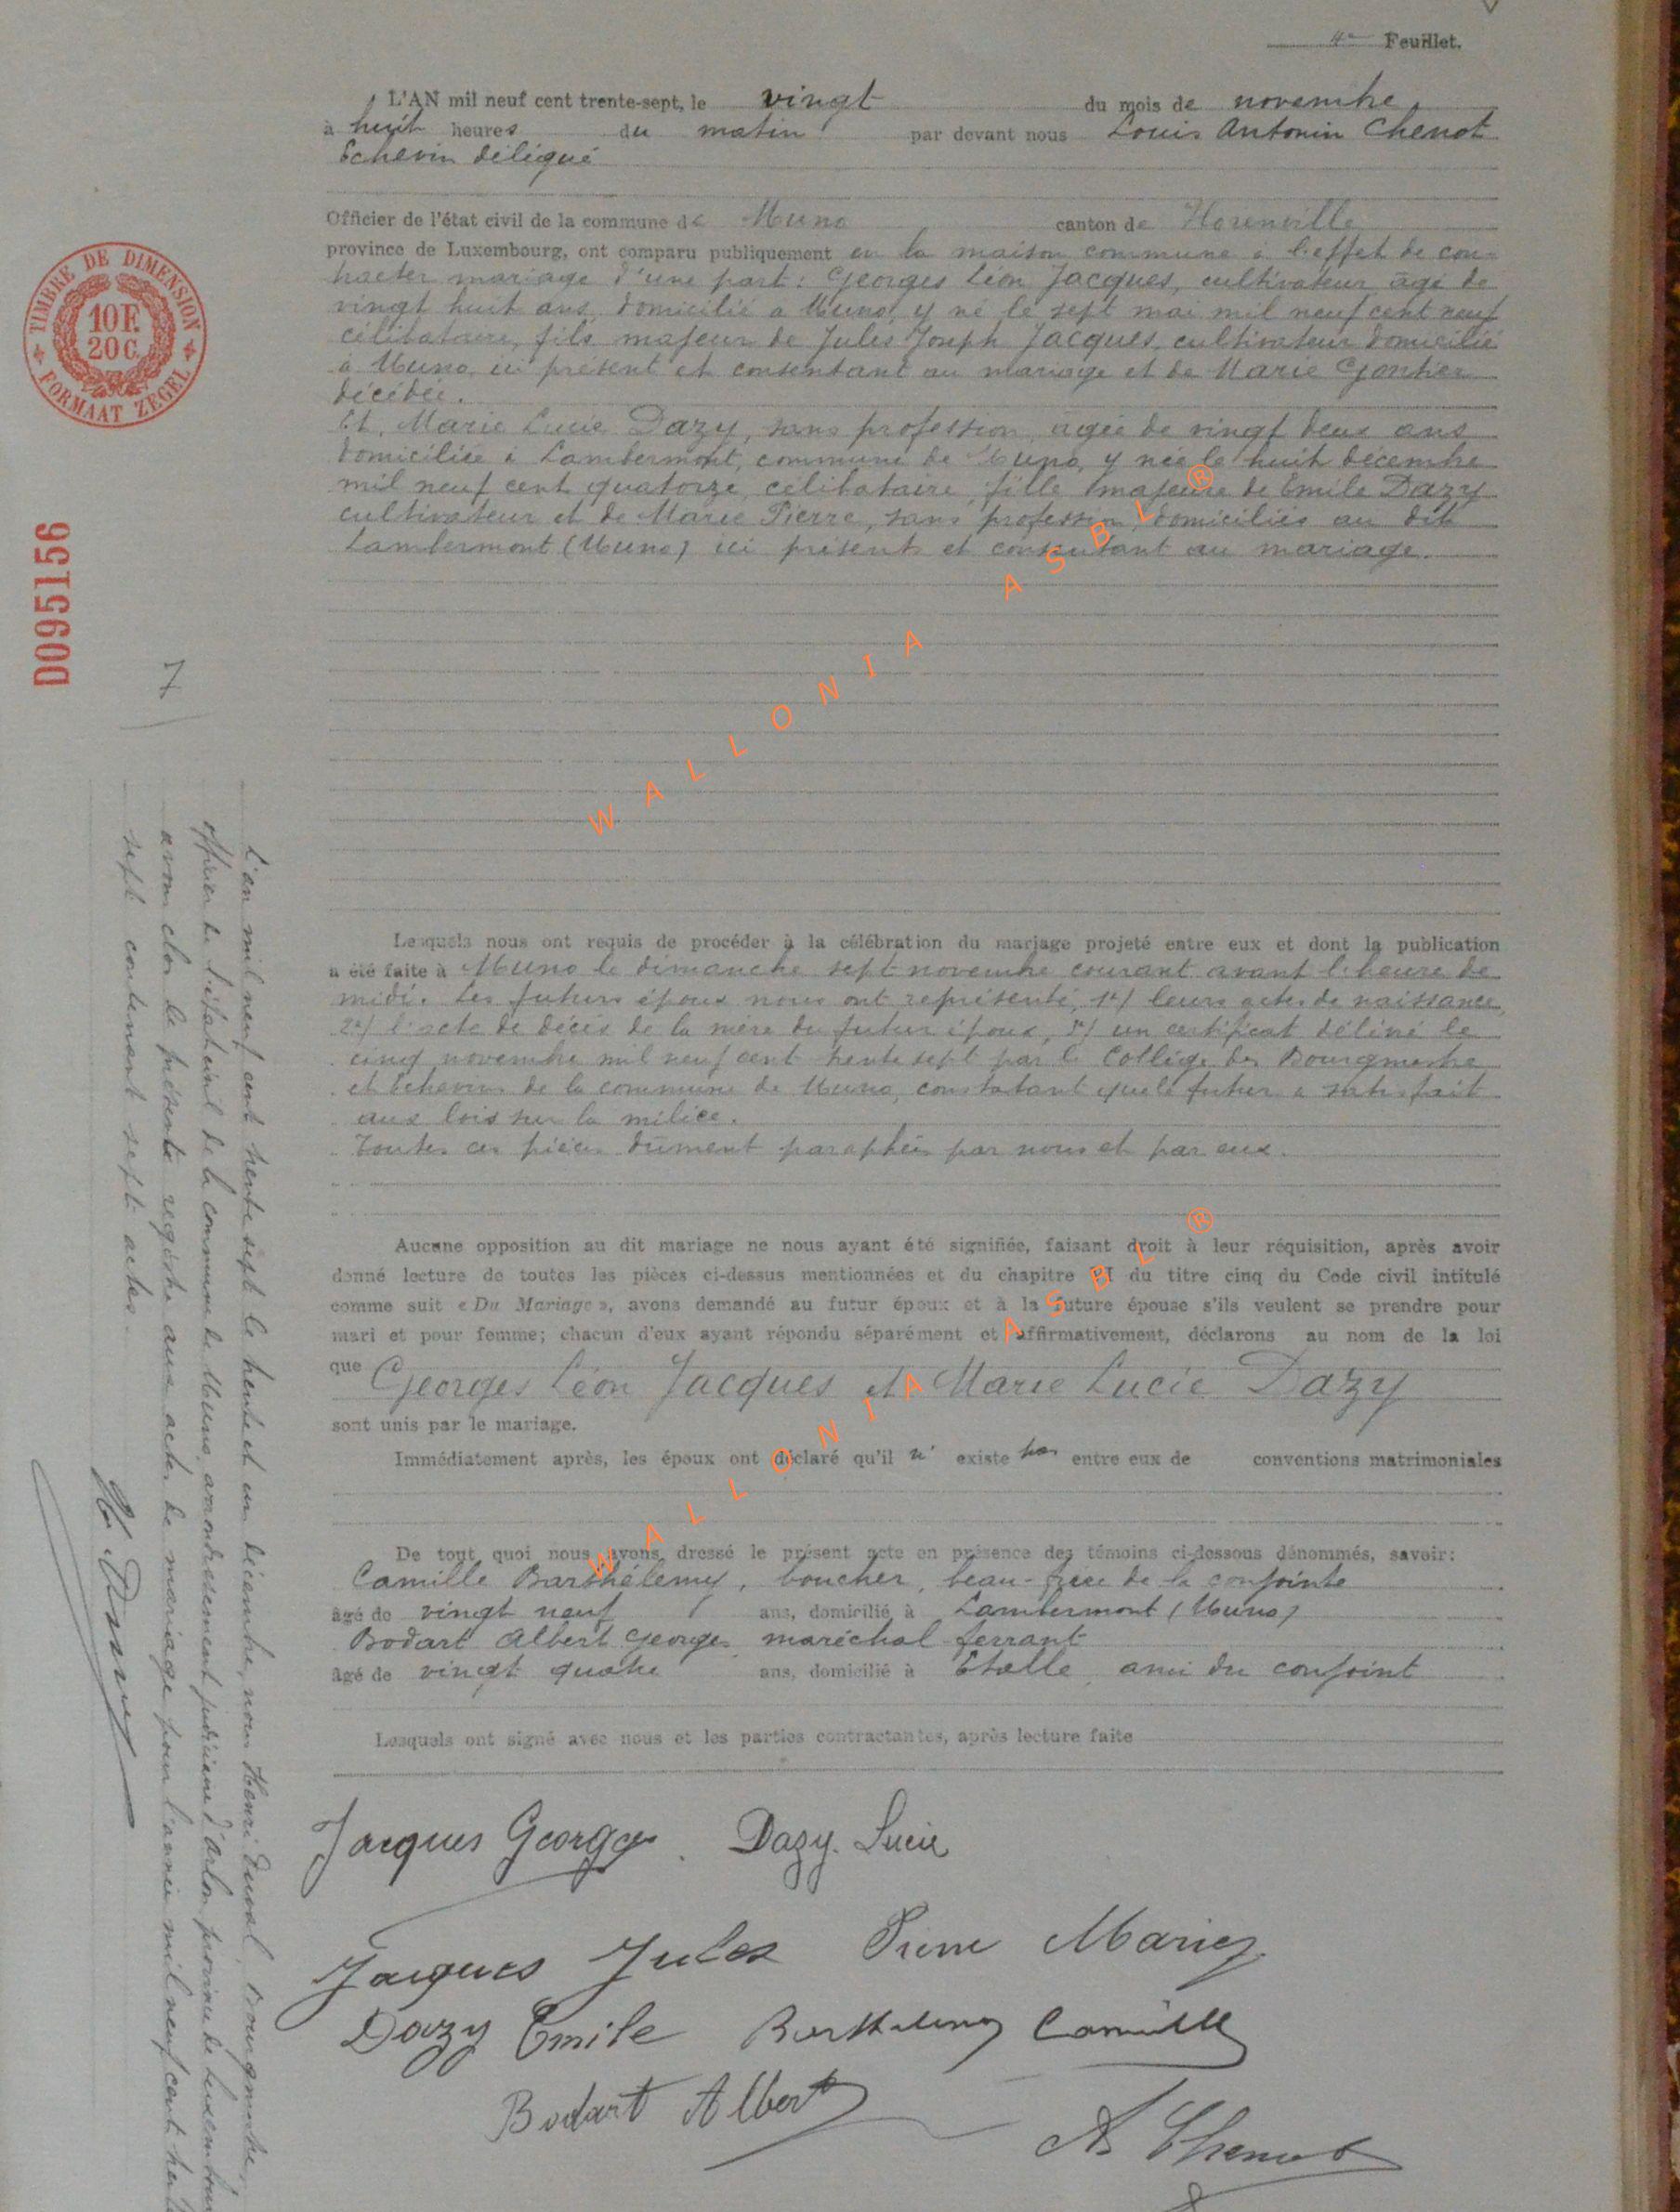 4e Feuillet.
L'AN mil neuf cent trente-sept, le vingt du mois de novembre
à huit heures du matin par devant nous Louis Antonin Chenot
Echevin délégué
Officier de l'état civil de la commune de Muno canton de Florenville
province de Luxembourg, ont comparu publiquement en la maison commune à l'effet de con-
tracter mariage d'une part: Georges Léon Jacques, cultivateur âgé de
vingt huit ans, domicilié à Muno, y né le sept mai mil neuf cent neuf
célibataire, fils majeur de Jules Joseph Jacques, cultivateur domicilié
à Muno, ici présent et consentant au mariage et de Marie Gontier
décédée.
Et, Marie Lucie Dazy, sans profession, âgée de vingt deux ans
domiciliée à Lambermont, commune de Muno, y née le huit décembre
mil neuf cent quatorze, célibataire, fille majeure de Emile Dazy
cultivateur et de Marie Pierre, sans profession, domiciliés au dit
Lambermont (Muno) ici présents et consentant au mariage.
Lesquels nous ont requis de procéder à la célébration du mariage projeté entre eux et dont la publication
a été faite à Muno le dimanche sept novembre courant avant l'heure de
midi. Les futurs époux nous ont représenté, 1°/ leurs actes de naissance,
2°/ l'acte de décès de la mère du futur époux, 3°/ un certificat délivré le
cinq novembre mil neuf cent trente sept par le Collège des Bourgmestre
et Echevins de la commune de Muno, constatant que le futur a satisfait
aux lois sur la milice.
Toutes ces pièces dûment paraphées par nous et par eux.
Aucune opposition au dit mariage ne nous ayant été signifiée, faisant droit à leur réquisition, après avoir
donné lecture de toutes les pièces ci-dessus mentionnées et du chapitre VI du titre cinq du Code civil intitulé
comme suit « Du Mariage », avons demandé au futur époux et à la future épouse s'ils veulent se prendre pour
mari et pour femme; chacun d'eux ayant répondu séparément et affirmativement, déclarons au nom de la loi
que Georges Léon Jacques et Marie Lucie Dazy
sont unis par le mariage.
Immédiatement après, les époux ont déclaré qu'il n' existe pas entre eux de conventions matrimoniales
De tout quoi nous avons dressé le présent acte en présence des témoins ci-dessous dénommés, savoir:
Camille Barthélemy, boucher, beau-frère de la conjointe
âgé de vingt neuf ans, domicilié à Lambermont (Muno)
Bodart Albert Georges maréchal ferrant
âgé de vingt quatre ans, domicilié à Etalle ami du conjoint
Lesquels ont signé avec nous et les parties contractantes, après lecture faite
Jacques Georges. Dazy. Lucie
Jacques Jules Pierre Marie
Dazy Emile Barthélemy Camille
Bodart Albert
A Chenot
TIMBRE DE DIMENSION
10 F.
20 C.
FORMAAT ZEGEL
D095156
7
L'an mil neuf cent trente sept le trente et un décembre, nous Henri Duval, Bourgmestre,
officier de l'état civil de la commune de Muno, arrondissement judiciaire d'Arlon, province de Luxembourg
avons clos le présent registre aux actes de mariage pour l'année mil neuf cent trente
sept contenant sept actes.
H. Duval
WALLONIA ASBL ®
WALLONIA ASBL ®